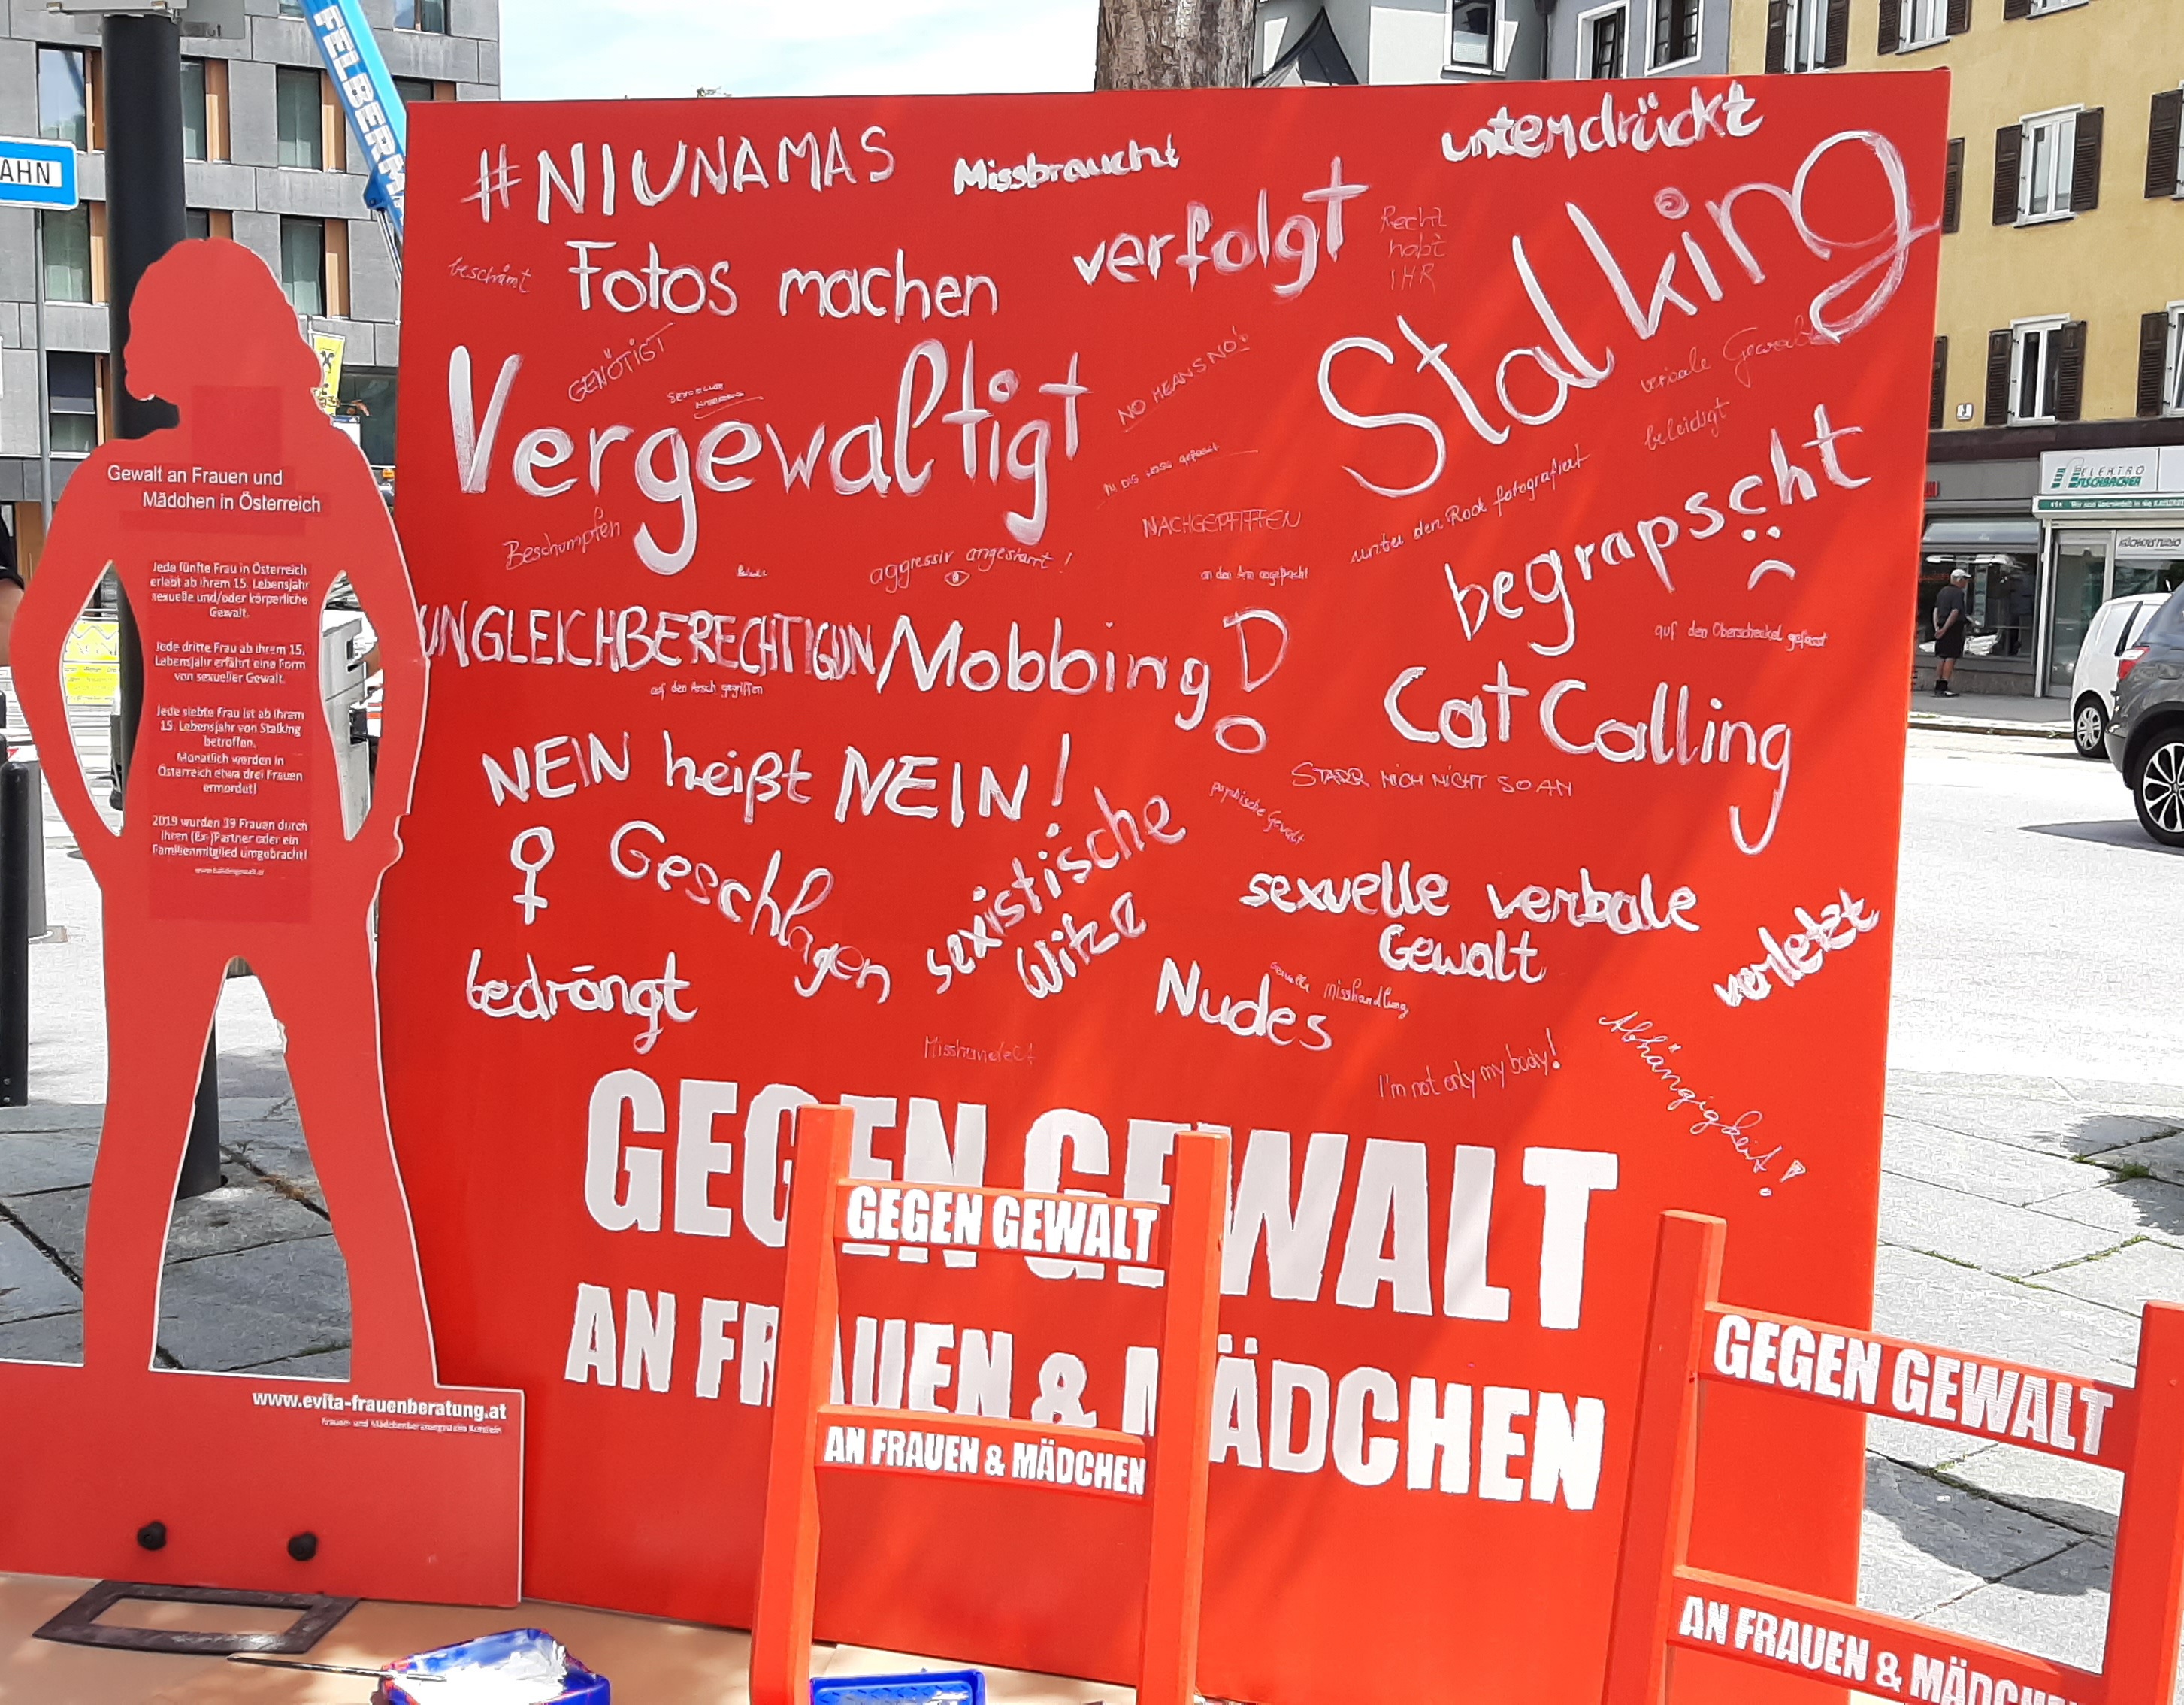 FELBER
AHN
#NIUNAMAS
Missbraucht
unterdrückt
beschämt
Fotos machen
verfolgt
Recht
habt
IHR
Stalking
GENÖTIGT
Vergewaltigt
NO MEANS NO!
verbale Gewalt
beleidigt
begrapscht
unter den Rock fotografiert
NACHGEPFIFFEN
Beschimpfen
aggressiv angestarrt!
an den Arm angefasst
UNGLEICHBERECHTIGUN
Mobbing!
auf den Oberschenkel gefasst
auf den Arsch gegriffen
CatCalling
NEIN heißt NEIN!
STARR MICH NICHT SO AN
psychische Gewalt
♀ Geschlagen
sexistische
Witze
sexuelle verbale
Gewalt
verletzt
bedrängt
Nudes
misshandlung
Misshandelt
I'm not only my body!
Abhängigkeit!
GEGEN GEWALT
AN FRAUEN & MÄDCHEN
Gewalt an Frauen und
Mädchen in Österreich
Jede fünfte Frau in Österreich
erlebt ab ihrem 15. Lebensjahr
sexuelle und/oder körperliche
Gewalt.
Jede dritte Frau ab ihrem 15.
Lebensjahr erfährt eine Form
von sexueller Gewalt.
Jede siebte Frau ist ab ihrem
15. Lebensjahr von Stalking
betroffen.
Monatlich werden in
Österreich etwa drei Frauen
ermordet!
2019 wurden 39 Frauen durch
ihren (Ex-)Partner oder ein
Familienmitglied umgebracht!
www.evita-frauenberatung.at
Frauen- und Mädchenberatungsstelle Kufstein
GEGEN GEWALT
AN FRAUEN & MÄDCHEN
GEGEN GEWALT
AN FRAUEN & MÄDCHE
ELEKTRO
FISCHBACHER
KÜCHENSTUDIO